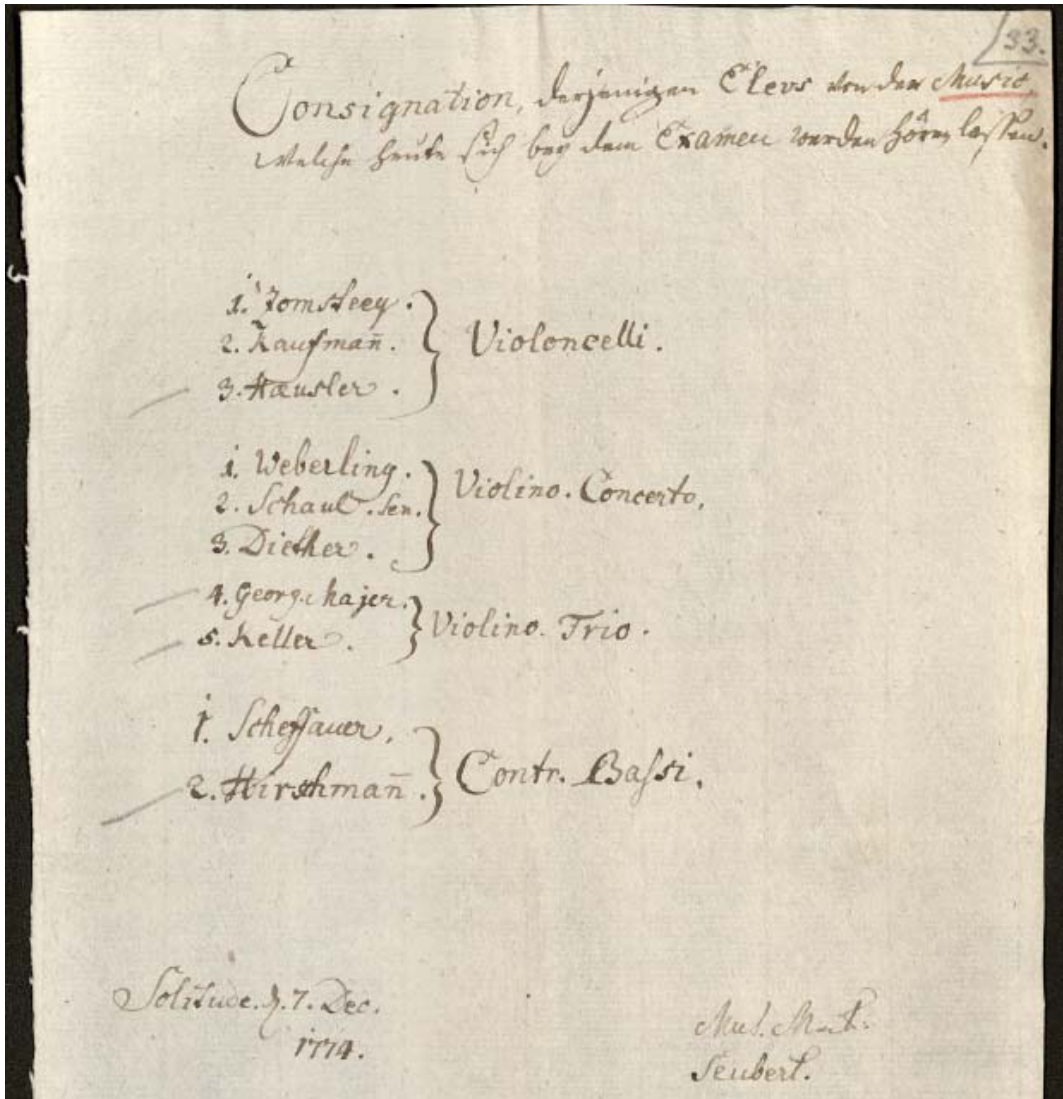 33.
Consignation, derjenigen Elevs von der Music,
Welche heute sich bey dem Examen werden hören lassen.
1. Zomsteey.
2. Kaufman̄.
3. Hæusler.
Violoncelli.
1. Weberling.
2. Schaul. Sen.
3. Diether.
Violino. Concerto.
4. Georg. Majer.
5. Keller.
Violino. Trio.
1. Scheffauer.
2. Hirshman̄.
Contr. Bassi.
Solitude. d. 7. Dec.
1774.
Mus.
Seubert.